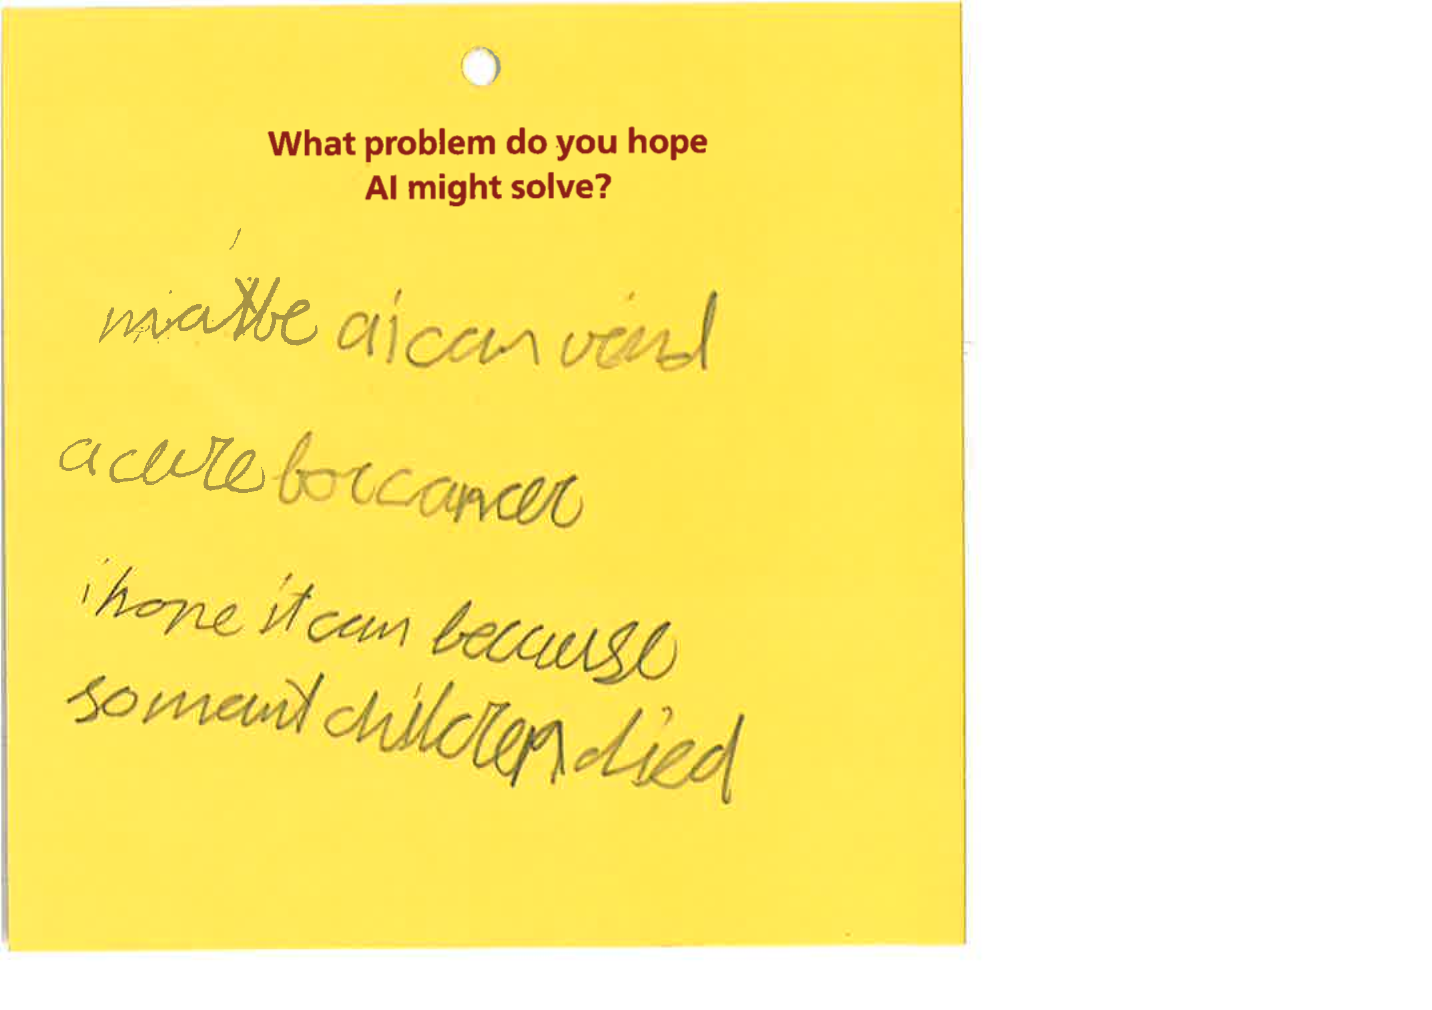 What problem do you hope
AI might solve?
maibe ai can veind
a cure for cancer
i hope it can because
so mani children died